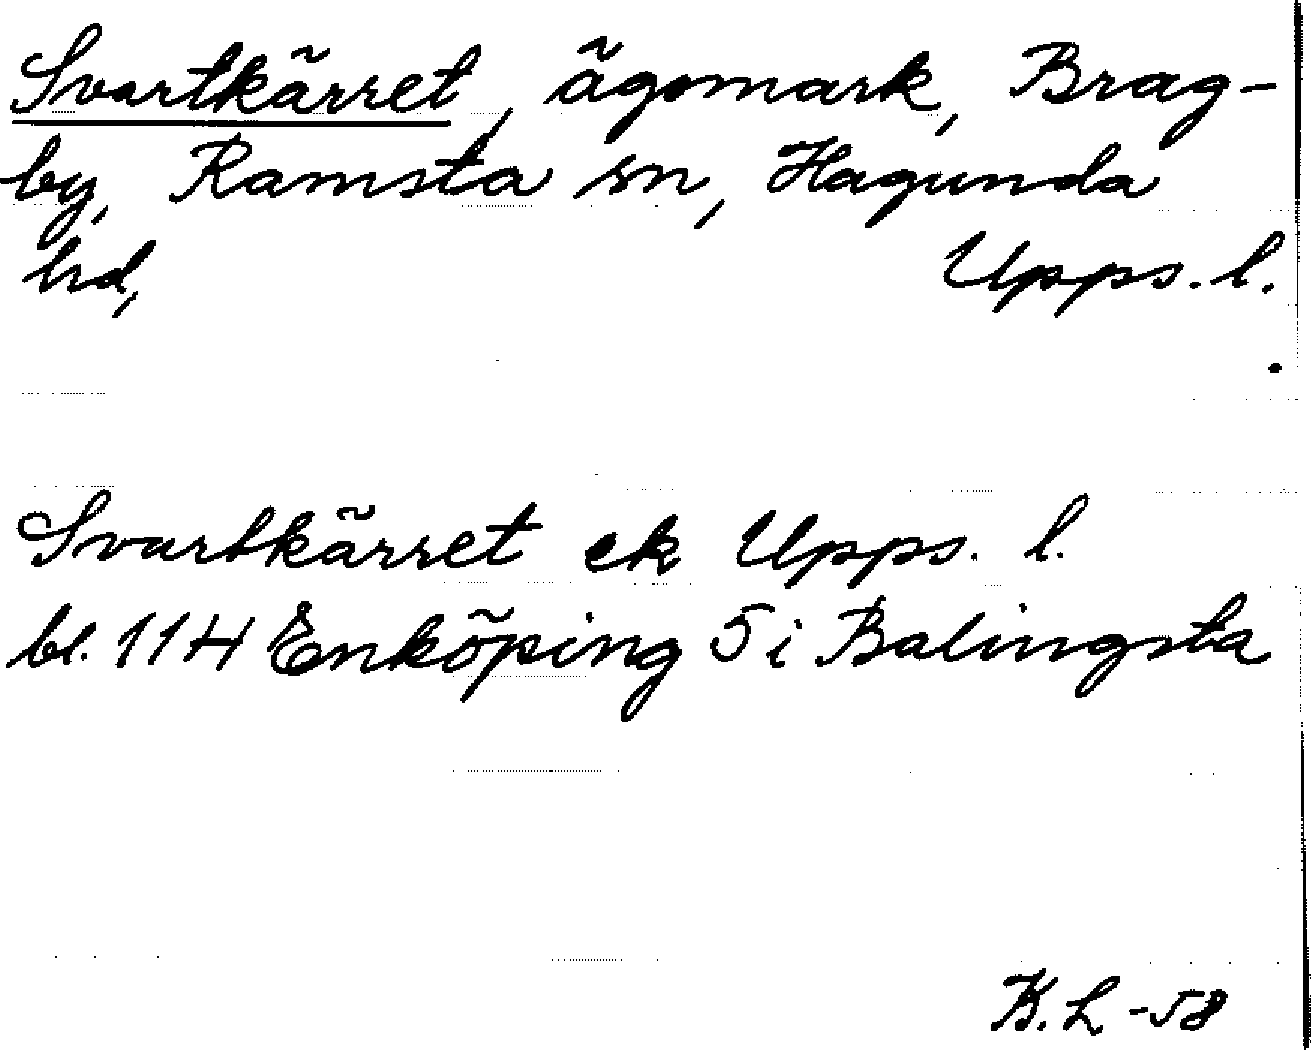 Svartkärret, ägomark, Brag-
by, Ramsta sn, Hagunda
hd, Upps. l.
Svartkärret ek Upps. l.
bl. 11H Enköping 5 i Balingsta
K. L -58